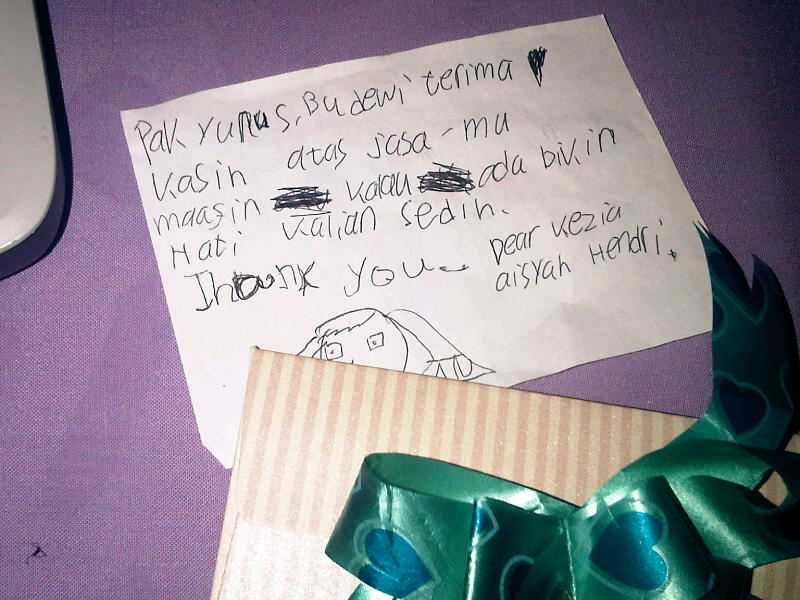 Pak Yunus, Bu dewi terima
kasih atas jasa-mu
maafin kalau ada bikin
Hati kalian sedih.
Thank you
Dear Kezia
aisyah Hendri.